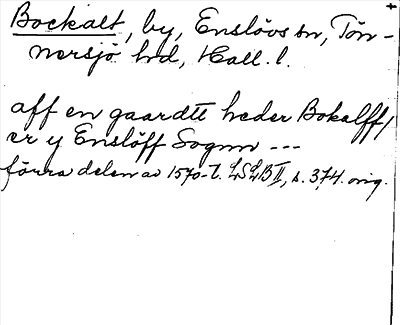 Bockalt, by, Enslövs sn, Tön-
nersjö hd, Hall. l.
aff en gaardtt heder Bokalff /
er y Enslöff Sognn ---
förra delen av 1570-t. LSLB II, s. 374. orig.